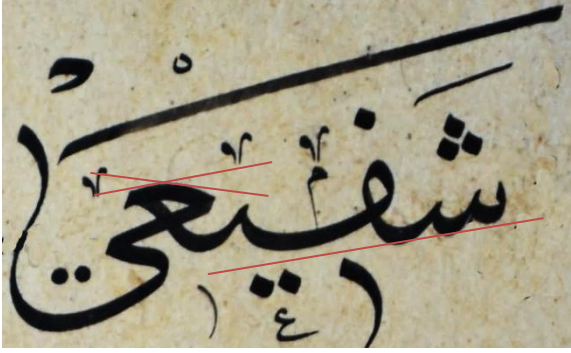 شفيعي